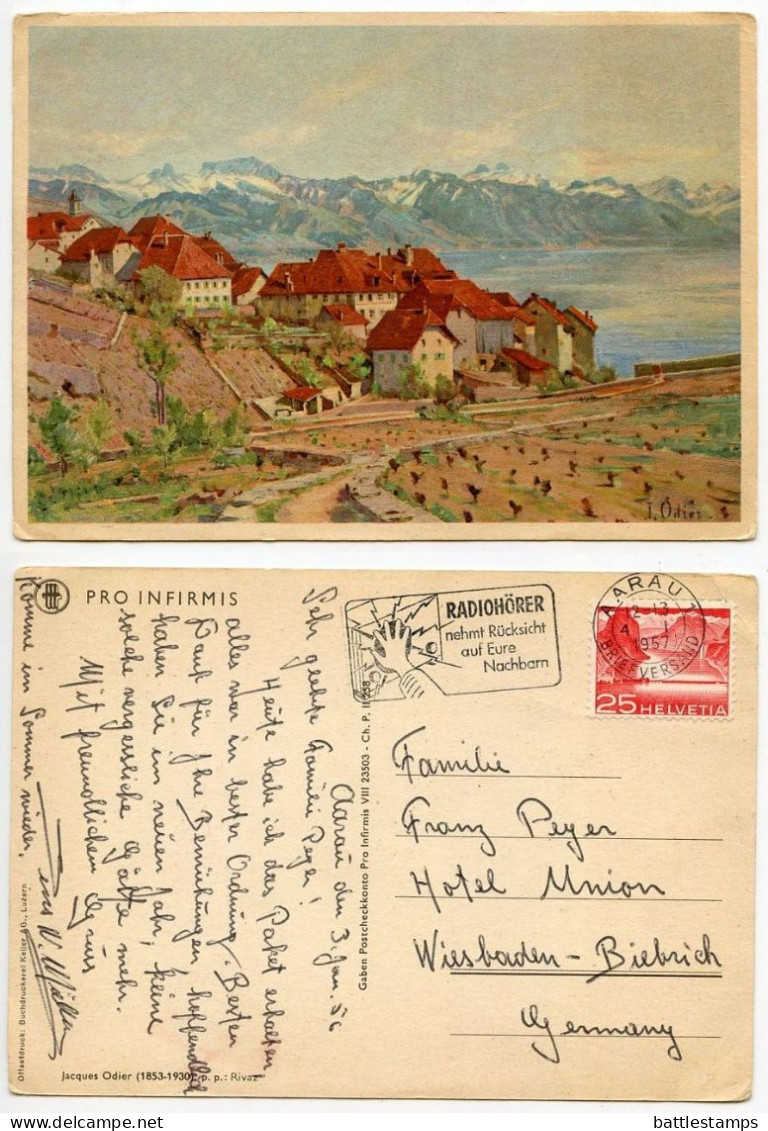 J. Odier
PRO INFIRMIS
RADIOHÖRER
nehmt Rücksicht
auf Eure
Nachbarn
AARAU 1
12-13
4. I.
1957
BRIEFVERSAND
25 HELVETIA
Aarau den 3. Jan.
Sehr geehrte Familie Peyer!
Heute habe ich das Paket erhalten
alles war in bester Ordnung. Besten
Dank für Ihre Bemühungen, hoffendlich
haben Sie im neuen Jahr, keine
solche vergessliche Gäste mehr.
Mit freundlichem Gruss
W. Müller
Komme im Sommer wieder,
Familie
Franz Peyer
Hotel Union
Wiesbaden-Biebrich
Germany
Gaben Postcheckkonto Pro Infirmis VIII 23503 - Ch. P.
Offsetdruck: Buchdruckerei Keller AG., Luzern
Jacques Odier (1853-1930), p. p.: Rivaz
delcampe.net
battlestamps